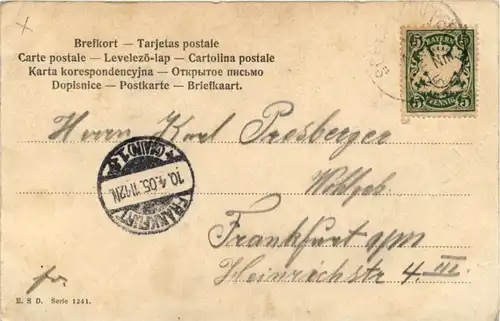 Brefkort — Tarjetas postale
Carte postale — Levelező-lap — Cartolina postale
Karta korespondencyjna — Открытое письмо
Dopisnice — Postkarte — Briefkaart.
BAYERN
5 5
PFENNIG
Herrn Karl Presberger
Wohlgeb
Frankfurt a/m
Heinrichstr 4. III.
FRANKFURT
10.4.05. 11-12N.
(MAIN)
E. S D. Serie 1241.